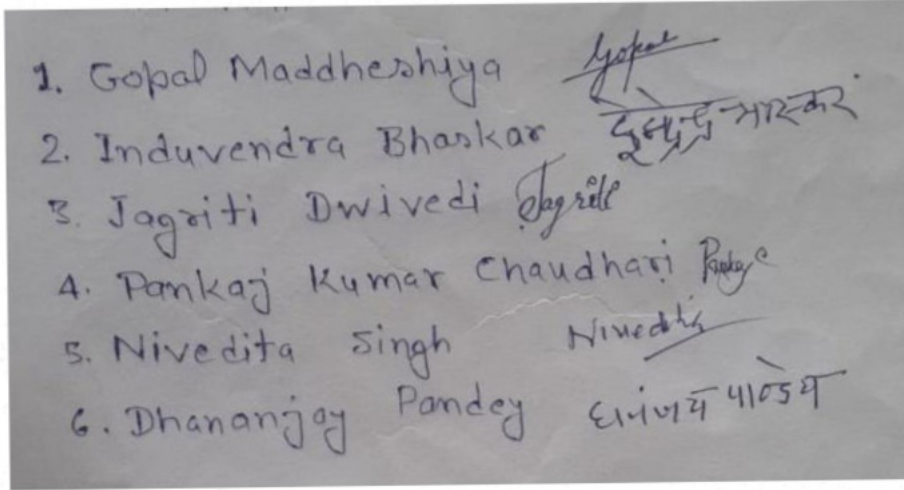 1. Gopal Maddheshiya Gopal
2. Induvendra Bhaskar भास्कर
3. Jagriti Dwivedi Jagriti
4. Pankaj Kumar Chaudhari Pankaj
5. Nivedita Singh Nivedita
6. Dhananjay Pandey धनंजय पाण्डेय